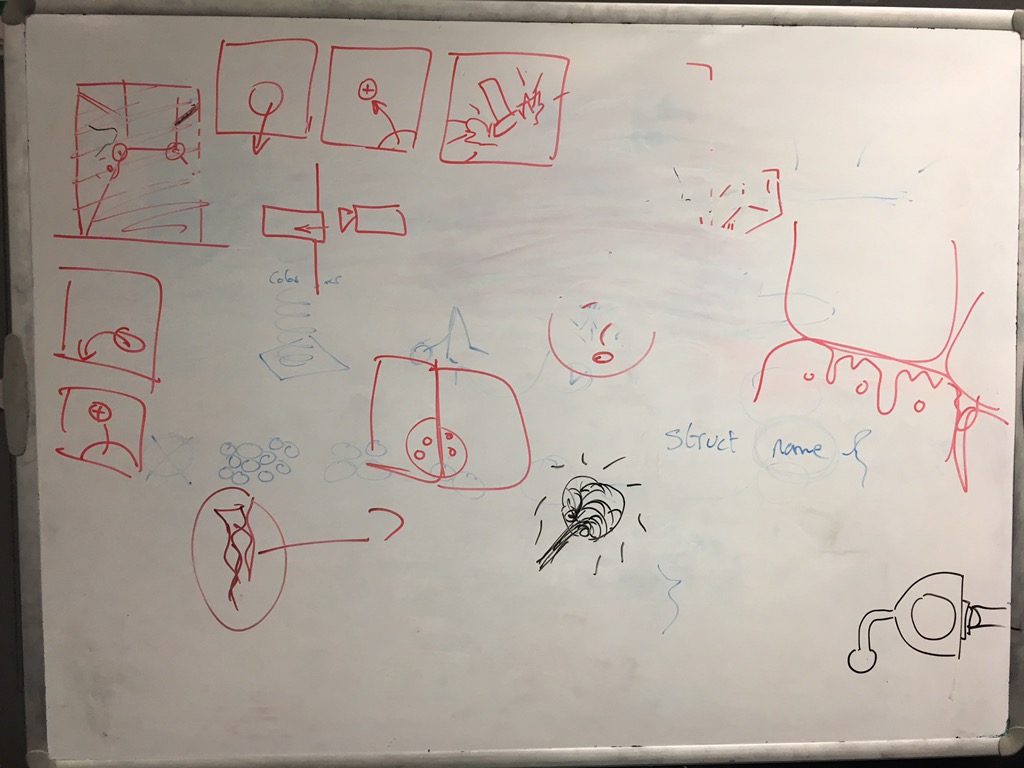 Color
struct name {
}